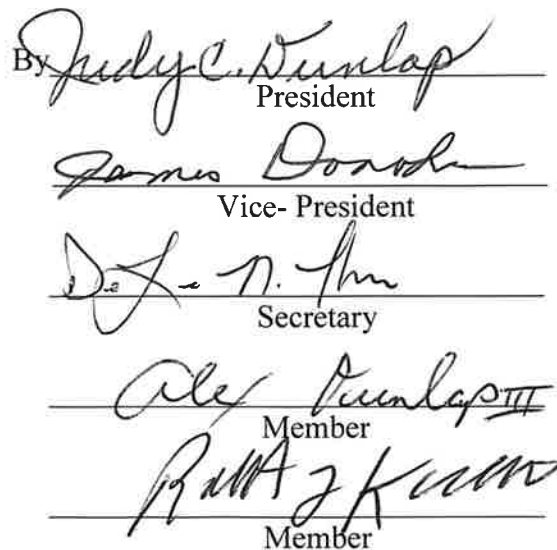 By Judy C. Dunlap
President
James Donoh
Vice- President
N.
Secretary
Alex Dunlap III
Member
Member